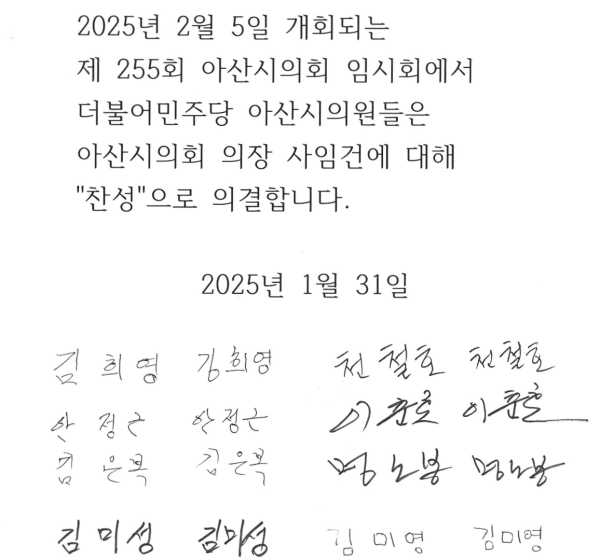 2025년 2월 5일 개회되는
제 255회 아산시의회 임시회에서
더불어민주당 아산시의원들은
아산시의회 의장 사임건에 대해
"찬성"으로 의결합니다.
2025년 1월 31일
김 희 영 김희영 천 철 호 천철호
안 정 근 안정근 이 춘 호 이춘호
김 은 복 김은복 명 노 봉 명노봉
김 미 성 김미성 김 미 영 김미영